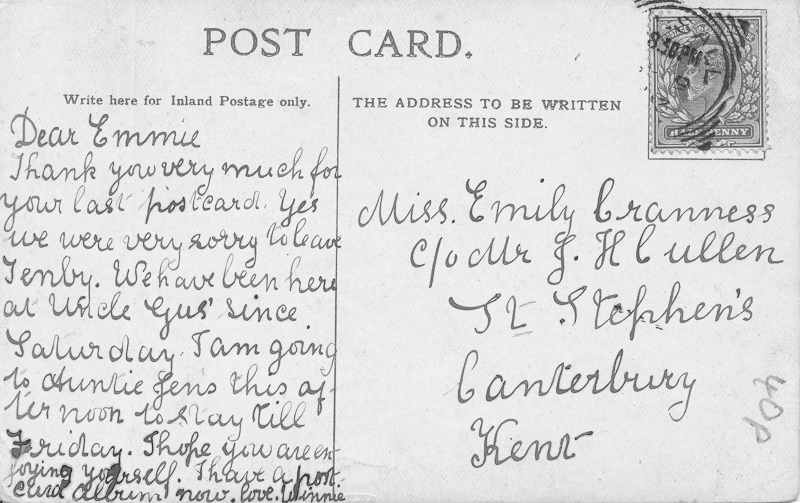 POST CARD.
Write here for Inland Postage only.
THE ADDRESS TO BE WRITTEN
ON THIS SIDE.
HALFPENNY
8 30 PM
Dear Emmie
Thank you very much for
your last postcard. Yes
we were very sorry to leave
Tenby. We have been here
at Uncle Gus' since
Saturday. I am going
to Auntie Jen's this af-
ter noon to stay till
Friday. I hope you are en-
joying yourself. I have a post.
card album now. love. Winnie
Miss. Emily Cranness
c/o Mr J. H Cullen
St Stephen's
Canterbury
Kent
40p